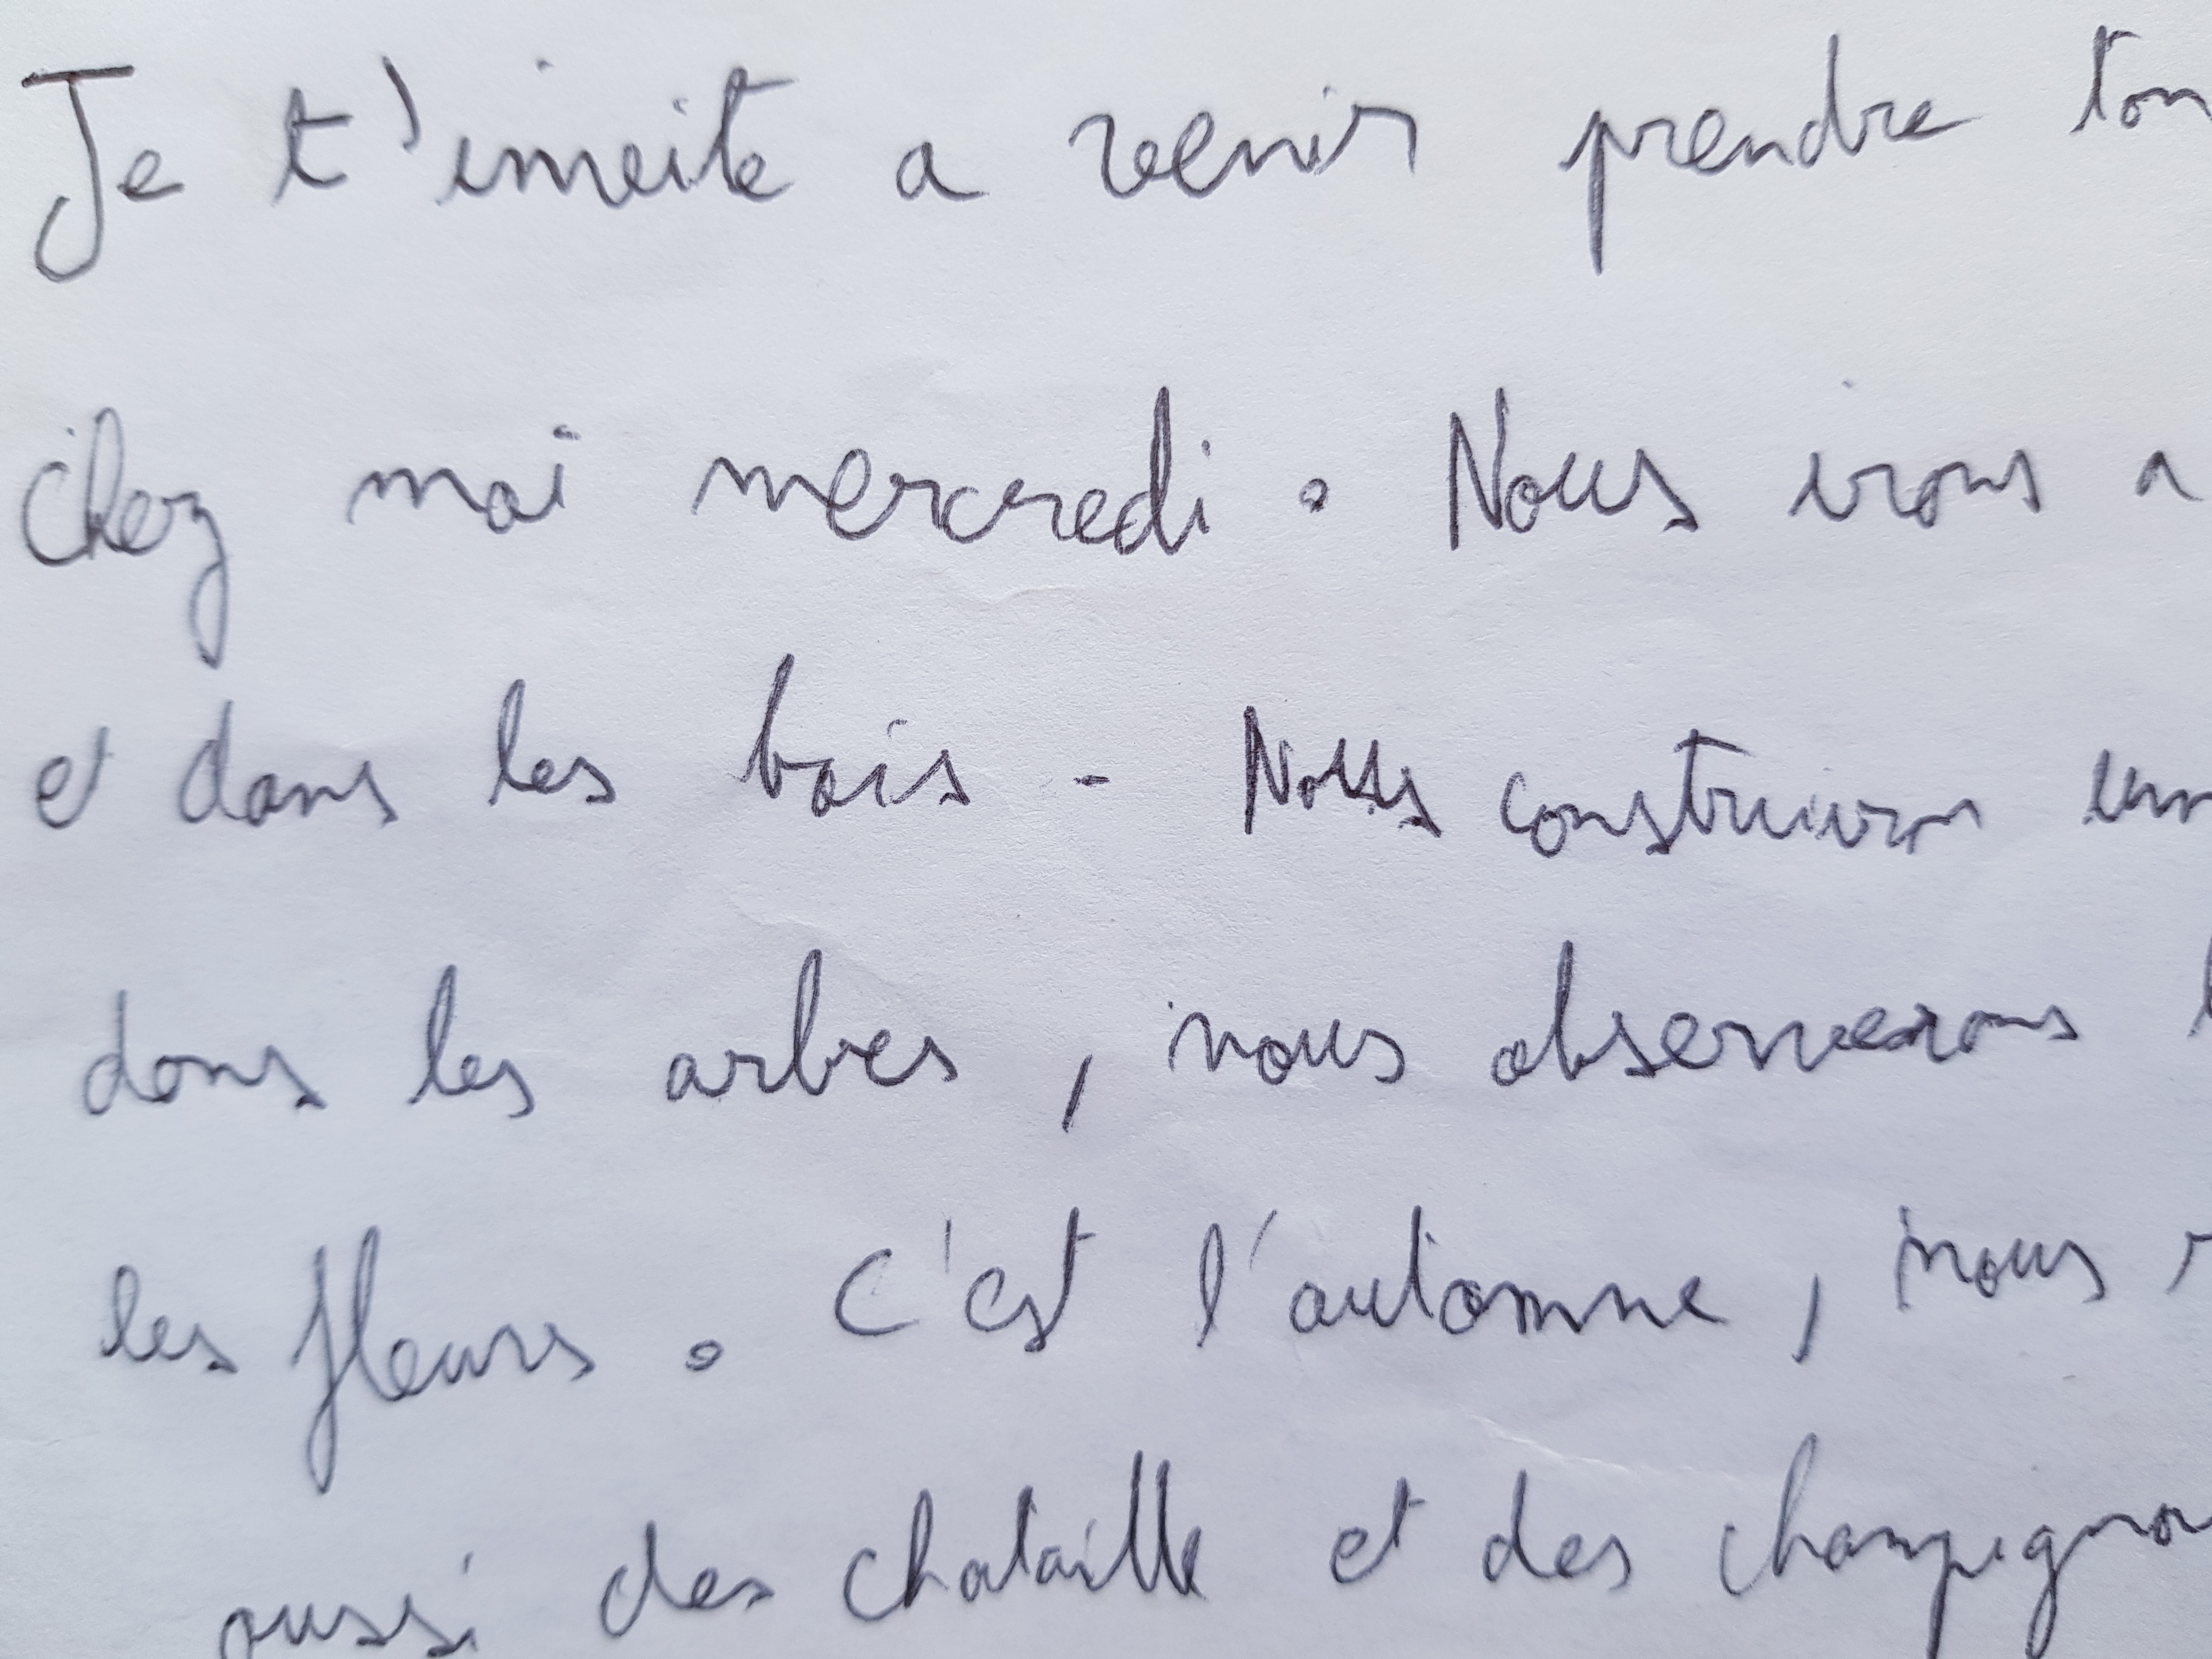 Je t'inveite a venir prendre ton
chez moi mercredi. Nous irons a
et dans les bois - Nous construiron un
dans les arbres, nous observerons
les fleurs. C'est l'automne, nous
aussi des chataille et des champignon